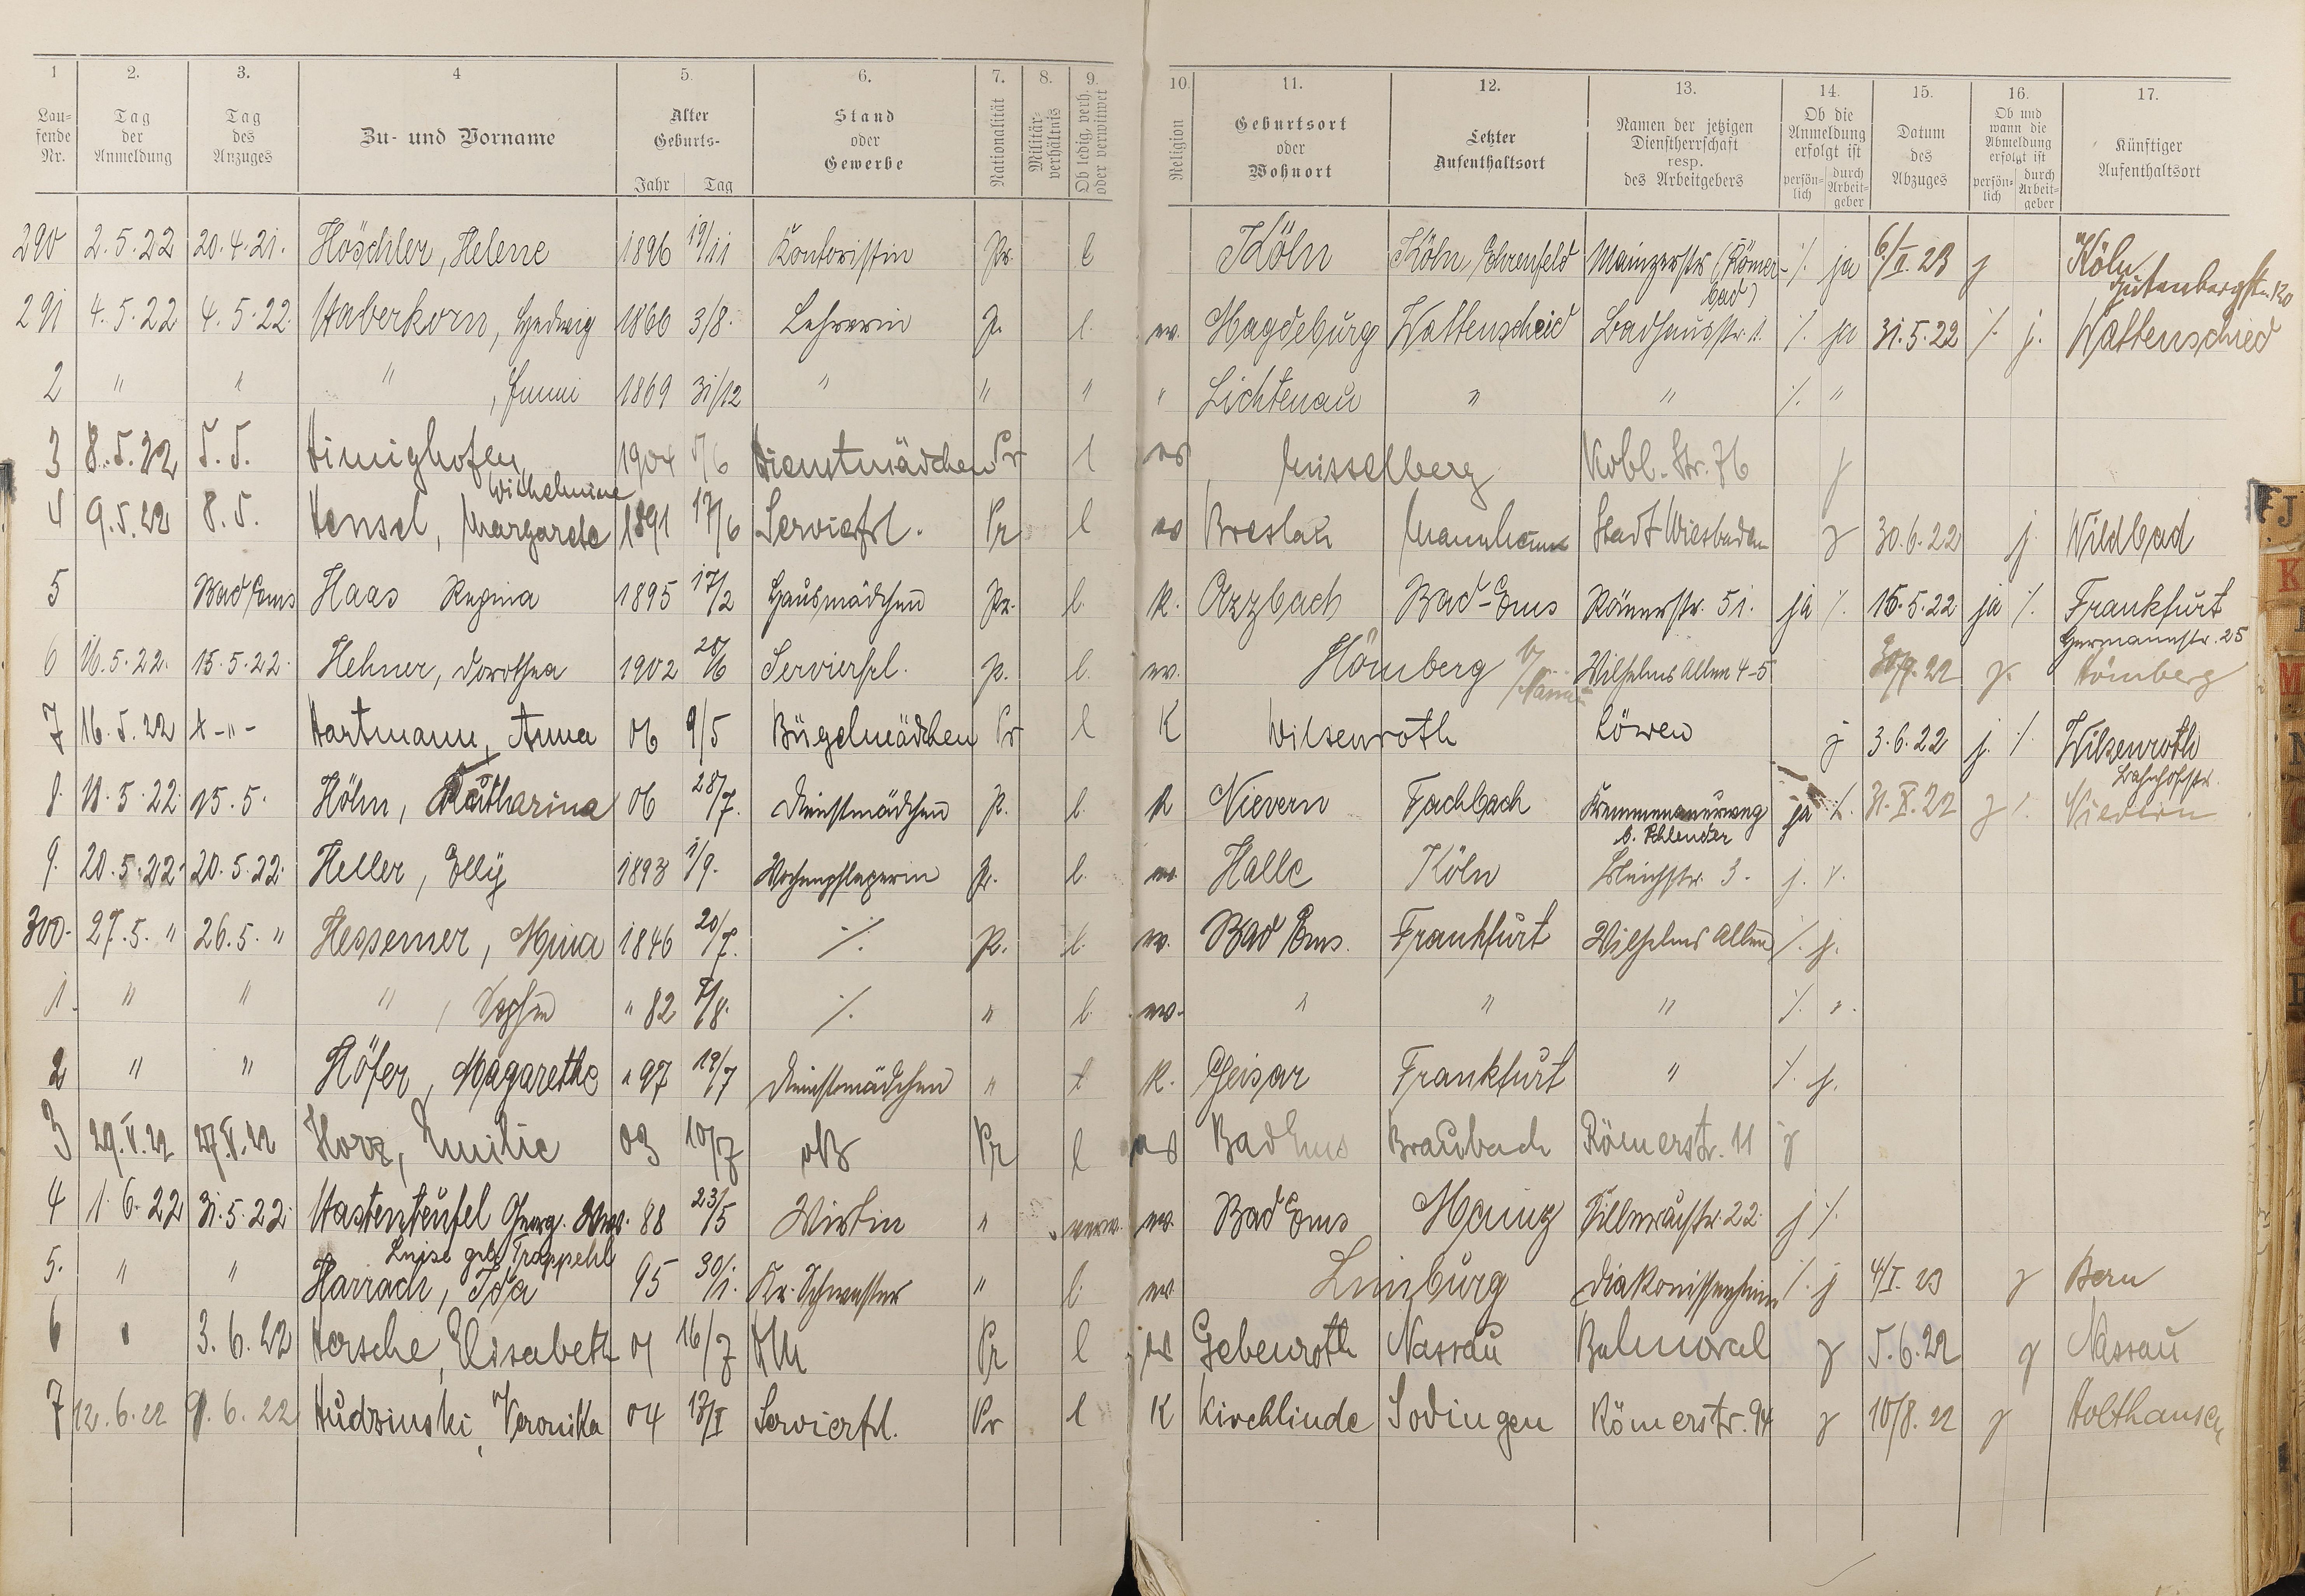 1 2. 3. 4 5. 6. 7. 8. 9. 10. 11. 12. 13. 14. 15. 16. 17.
Lau-fende Nr. Tag der Anmeldung Tag des Anzuges Zu- und Vorname Alter Geburts- Jahr Tag Stand oder Gewerbe Nationalität Militär-verhältnis Ob ledig, verh. oder verwitwet Religion Geburtsort oder Wohnort Letzter Aufenthaltsort Namen der jetzigen Dienstherrschaft resp. des Arbeitgebers Ob die Anmeldung erfolgt ist persön-lich durch Arbeit-geber Datum des Abzuges Ob und wann die Abmeldung erfolgt ist persön-lich durch Arbeit-geber Künftiger Aufenthaltsort
290 2.5.22 20.4.21. Höschler, Helene 1896 19/11 Kontoristin Pr. l Köln Köln/Ehrenfeld Mainzerstr. (Römer-bad) ·/. ja 6/II.23 j Köln
291 4.5.22 4.5.22. Haberkorn, Hedwig 1866 3/8. Lehrerin P. l. ev. Magdeburg Wattenscheid Badhausstr. 1. ·/. ja 31.5.22 ·/. j. Wattenschied
2 " " " , 1869 31/12 " " " " Lichtenau " " ·/. "
3 8.5.22 5.5. Himighofen, Wilhelmine 1904 /6 Dienstmädchen Pr l ev Misselberg Kobl.-Str. 76 j
4 9.5.22 8.5. Hensel, Margarete 1891 17/6 Servierfrl. Pr l ev Breslau Mannheim Stadt Wiesbaden j 30.6.22 j. Wildbad
5 Bad Ems Haas Regina 1895 17/2 Hausmädchen Pr. l. K. Arzbach Bad-Ems Römerstr. 51. ja ·/. 16.5.22 ja ·/. Frankfurt
Hermannstr. 25
6 16.5.22. 15.5.22. Hehner, Dorothea 1902 28/6 Servierfrl. P. l. ev. Hömberg b/Nassau Wilhelms Allee 4-5 30/9.22 j. Hömberg
7 16.5.22 -"- Hartmann, Anna 06 9/5 Bügelmädchen Pr l K Wilsenroth Löwen j 3.6.22 j. ·/. Wilsenroth
Bahnhofstr.
8. 18.5.22. 15.5. Höhn, Katharina 06 28/7. Dienstmädchen P. l. K Nievern Fachbach Kemmenauerweg b. Schleuder ja ·/. 31.X.22 j ·/. Nievern
9. 20.5.22. 20.5.22. Heller, Elly 1893 1/9. Wochenpflegerin Pr. l. ev. Halle Köln Bleichstr. 3. j. ·/.
300. 27.5. " 26.5. " Hessemer, Mina 1846 20/7. ·/. P. l. ev. Bad Ems. Frankfurt Wilhelms Allee ·/. j.
1. " " " , Sophie " 82 7/8. ·/. " l. ev. " " " ·/. ".
2 " " Höfer, Magarethe " 97 19/7 Dienstmädchen " l K. Geisar Frankfurt " ·/. j.
3 29.V.22 27.V.22 Horz, Emilie 03 10/7 oB Pr l ev Bad Ems Braubach Römerstr. 11 j
4 1.6.22 31.5.22. Hastenteufel Georg. Wwe. 88 23/5 Wirtin " verw. ev. Bad Ems Mainz Villenaustr. 22. j ·/.
Luise geb. Trappehl
5. " " Harrach, Ida 95 30/1. Kr. Schwester " l. ev Limburg Diakonissenheim ·/. j 4/I.23 j Bern
6 " 3.6.22 Hersche, Elisabeth 01 16/7 DM Pr l ev Gebenroth Nassau Balmoral j 5.6.22 j Nassau
7 12.6.22 9.6.22 Hudzinski, Veronika 04 13/I Servierfrl. Pr l K Kirchlinde Sodingen Römerstr. 94 j 10/8.22 j Holthausen
J
K
M